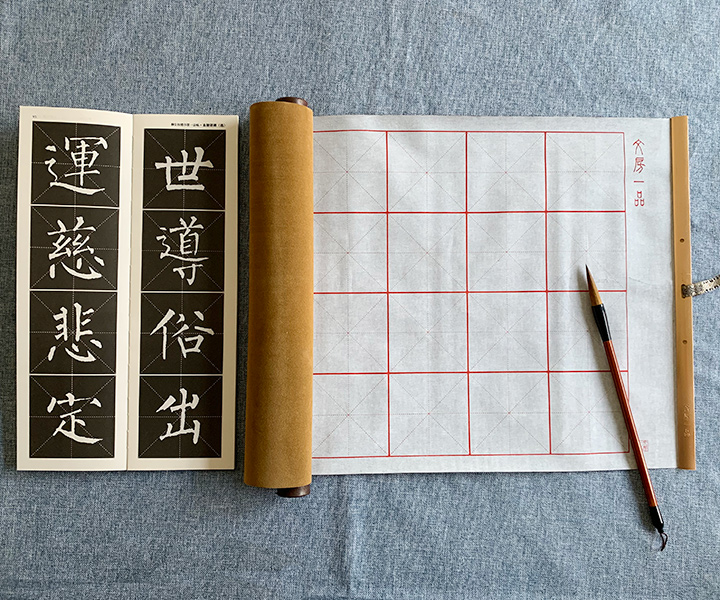 世導俗出
運慈悲定
文房一品